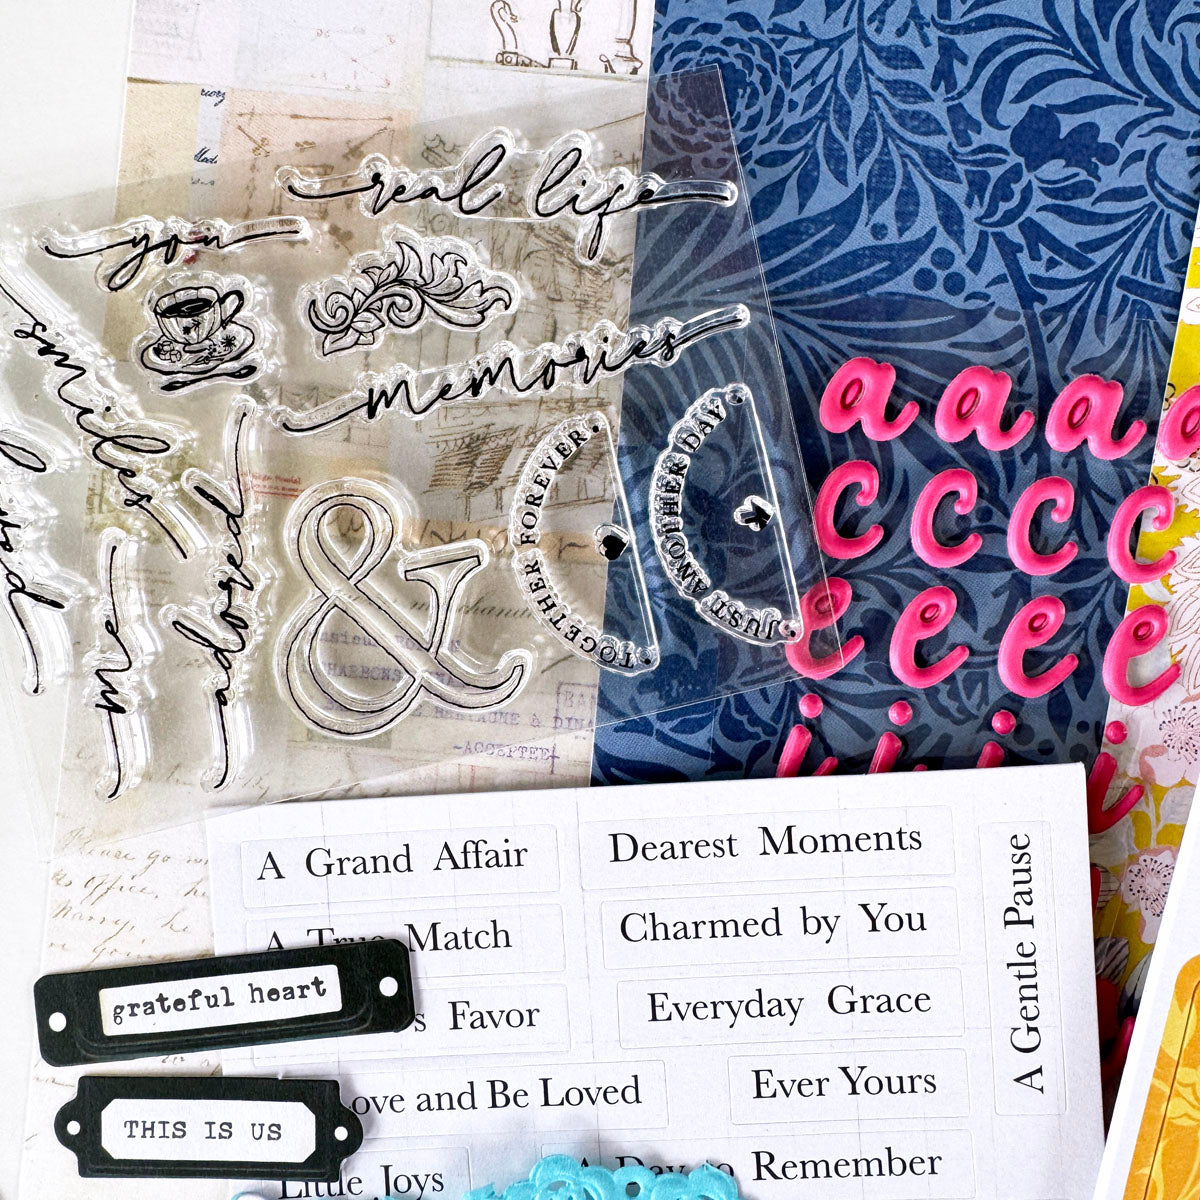 real life
you
smiles
memories
adored
me
&
TOGETHER FOREVER
JUST ANOTHER DAY
a a a a
c c c c
e e e e
i i i i
-ACCEPTEE
A Grand Affair
Dearest Moments
A True Match
Charmed by You
A Gentle Pause
grateful heart
Favor
Everyday Grace
ove and Be Loved
Ever Yours
THIS IS US
Little Joys
A Day to Remember